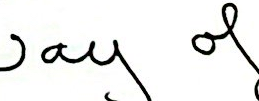 way of